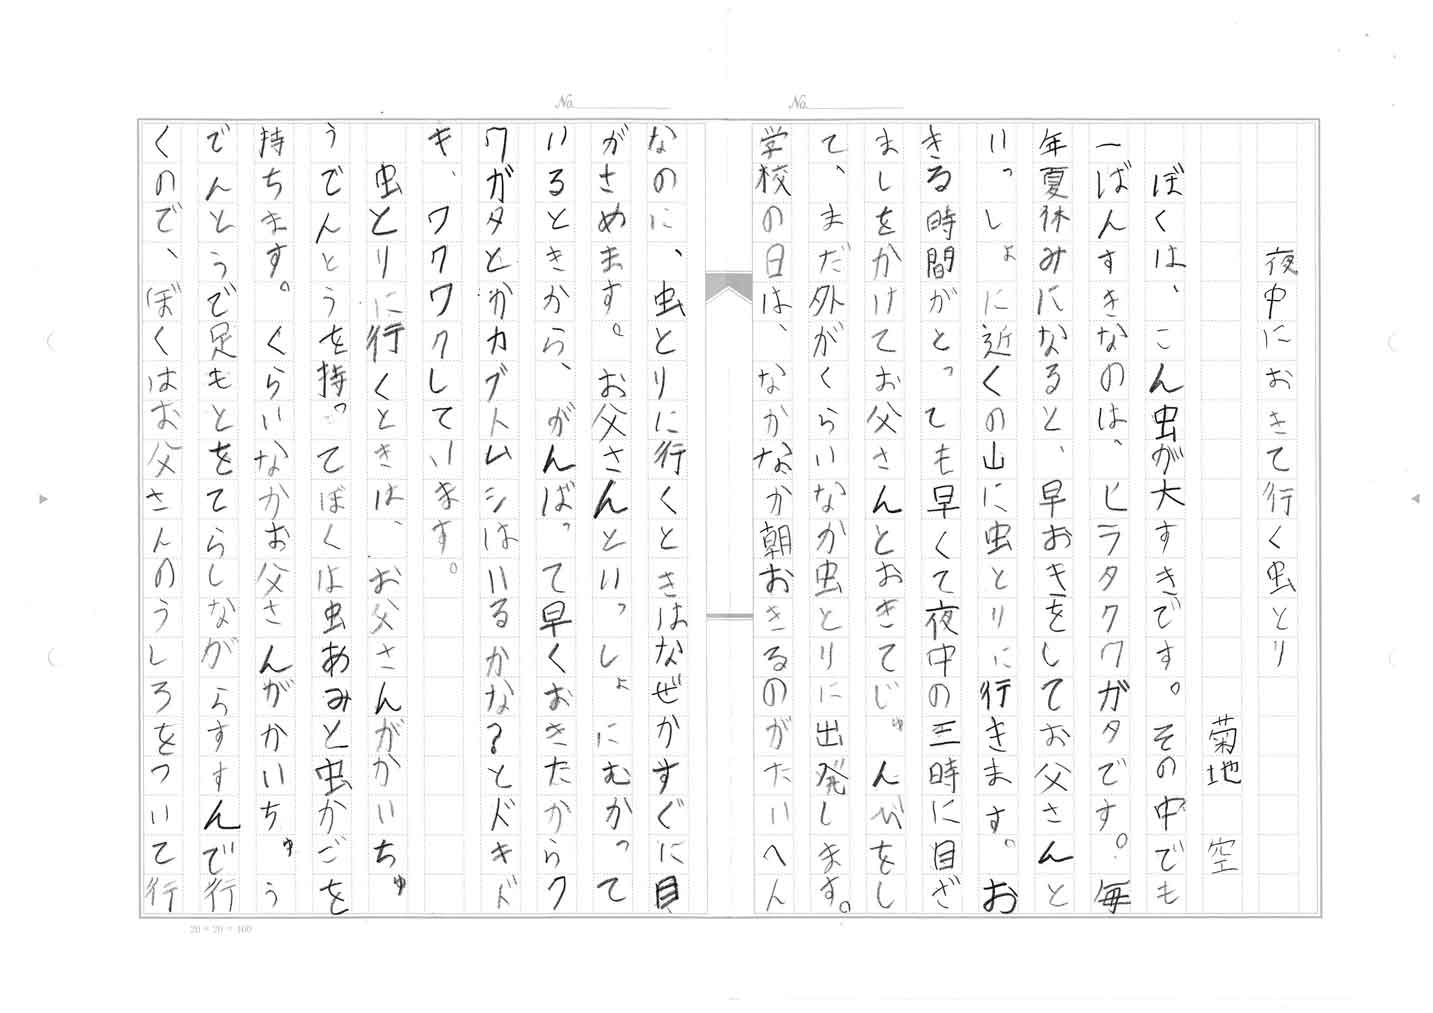 No.
No.
夜中におきて行く虫とり
菊地　空
ぼくは、こん虫が大すきです。その中でも
一ばんすきなのは、ヒラタクワガタです。毎
年夏休みになると、早おきをしてお父さんと
いっしょに近くの山に虫とりに行きます。お
きる時間がとっても早くて夜中の三時に目ざ
ましをかけてお父さんとおきてじゅんびをし
て、まだ外がくらいなか虫とりに出発します。
学校の日は、なかなか朝おきるのがたいへん
なのに、虫とりに行くときはなぜかすぐに目
がさめます。お父さんといっしょにむかって
いるときから、がんばって早くおきたからク
ワガタとかカブトムシはいるかな？とドキド
キ、ワクワクしています。
虫とりに行くときは、お父さんがかいちゅ
うでんとうを持ってぼくは虫あみと虫かごを
持ちます。くらいなかお父さんがかいちゅう
でんとうで足もとをてらしながらすすんで行
くので、ぼくはお父さんのうしろをついて行
20×20=400